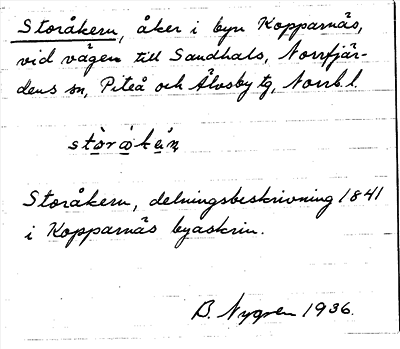 Storåkern, åker i byn Kopparnäs,
vid vägen till Sandhals, Norrfjär-
dens sn, Piteå och Älvsby tg, Norrb. l.
Storåkern, delningsbeskrivning 1841
i Kopparnäs byaskrin.
B. Nygren 1936.